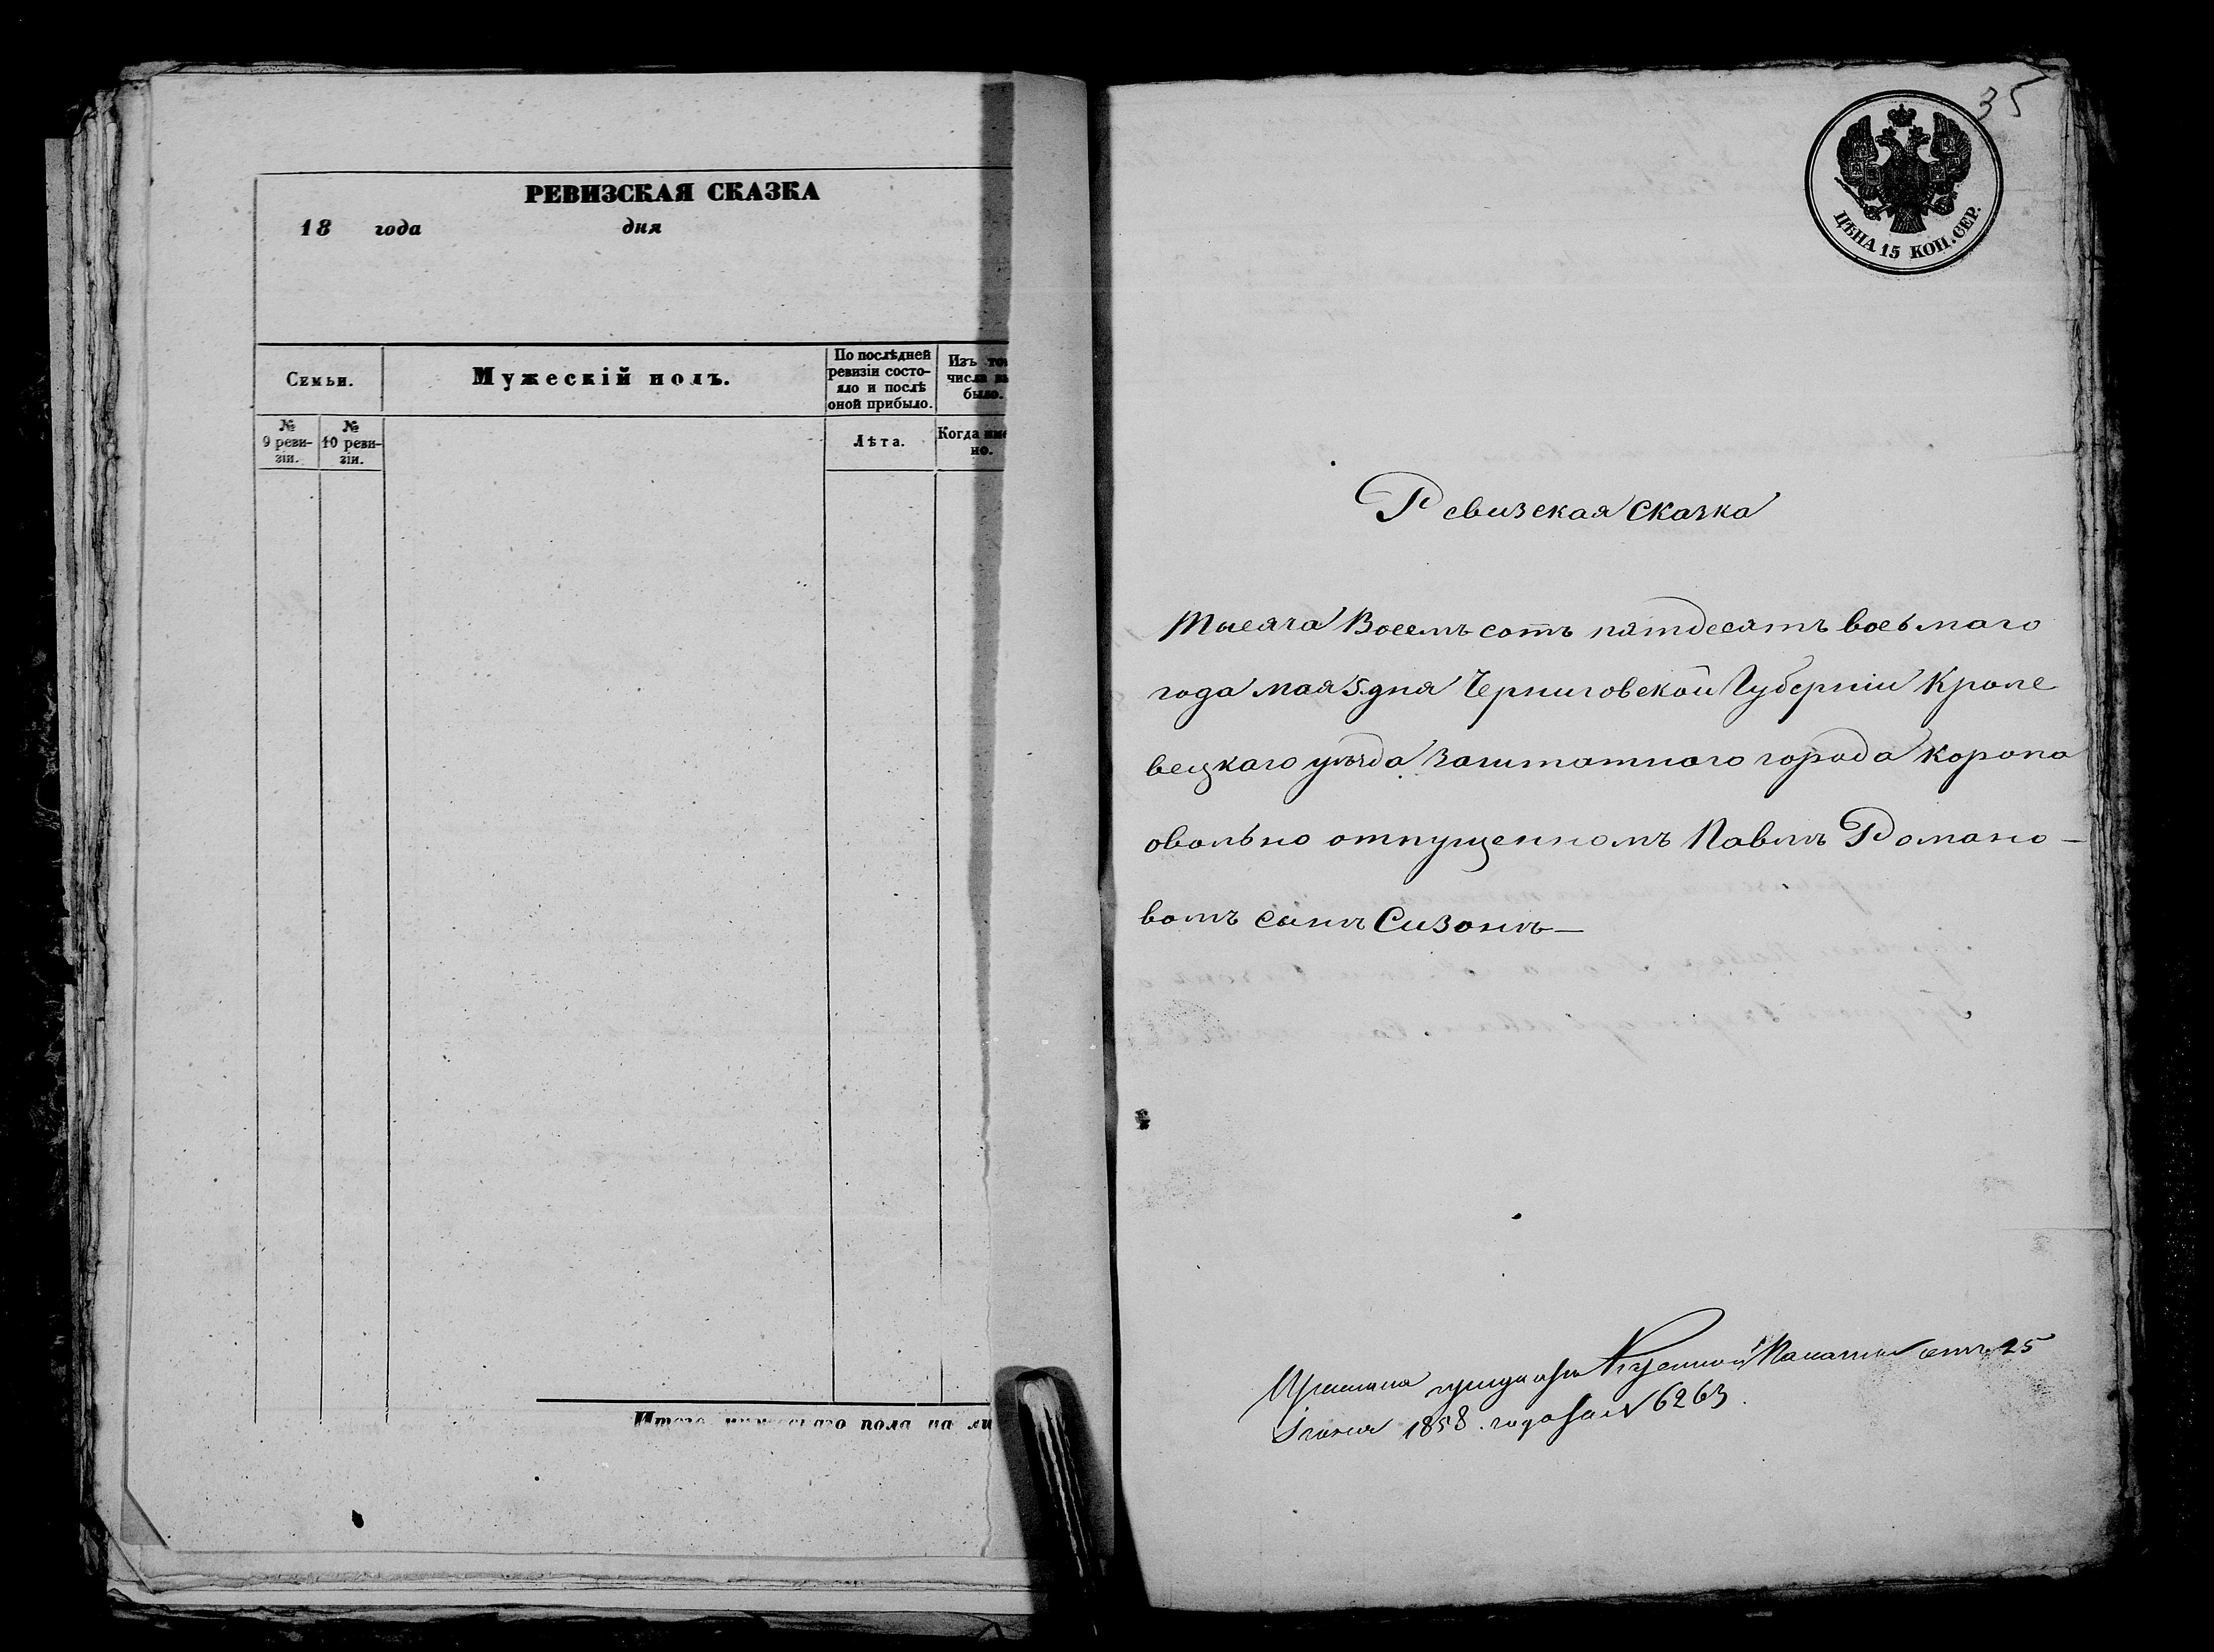 РЕВИЗСКАЯ СКАЗКА
18 года дня
Семьи.
Мужескій полъ.
По послѣдней
ревизіи состо-
яло и послѣ
оной прибыло.
Изъ
числа
было.
№
9 реви-
зіи.
№
10 реви-
зіи.
Лѣта.
Когда
но.
Итого пола на
35
ЦѢНА 15 КОП. СЕР.
Ревизская Сказка
Тысяча Восемъ сотъ пятдесятъ восьмаго
года мая 5 дня Черниговской Губерніи Кроле
вецкаго уѣзда Заштатного города Коропа
овольно отпущенномъ Павлѣ Романо-
вомъ сынѣ Сизонѣ-
Казенной Палаты отъ 25
Іюня 1858. года за № 6263.